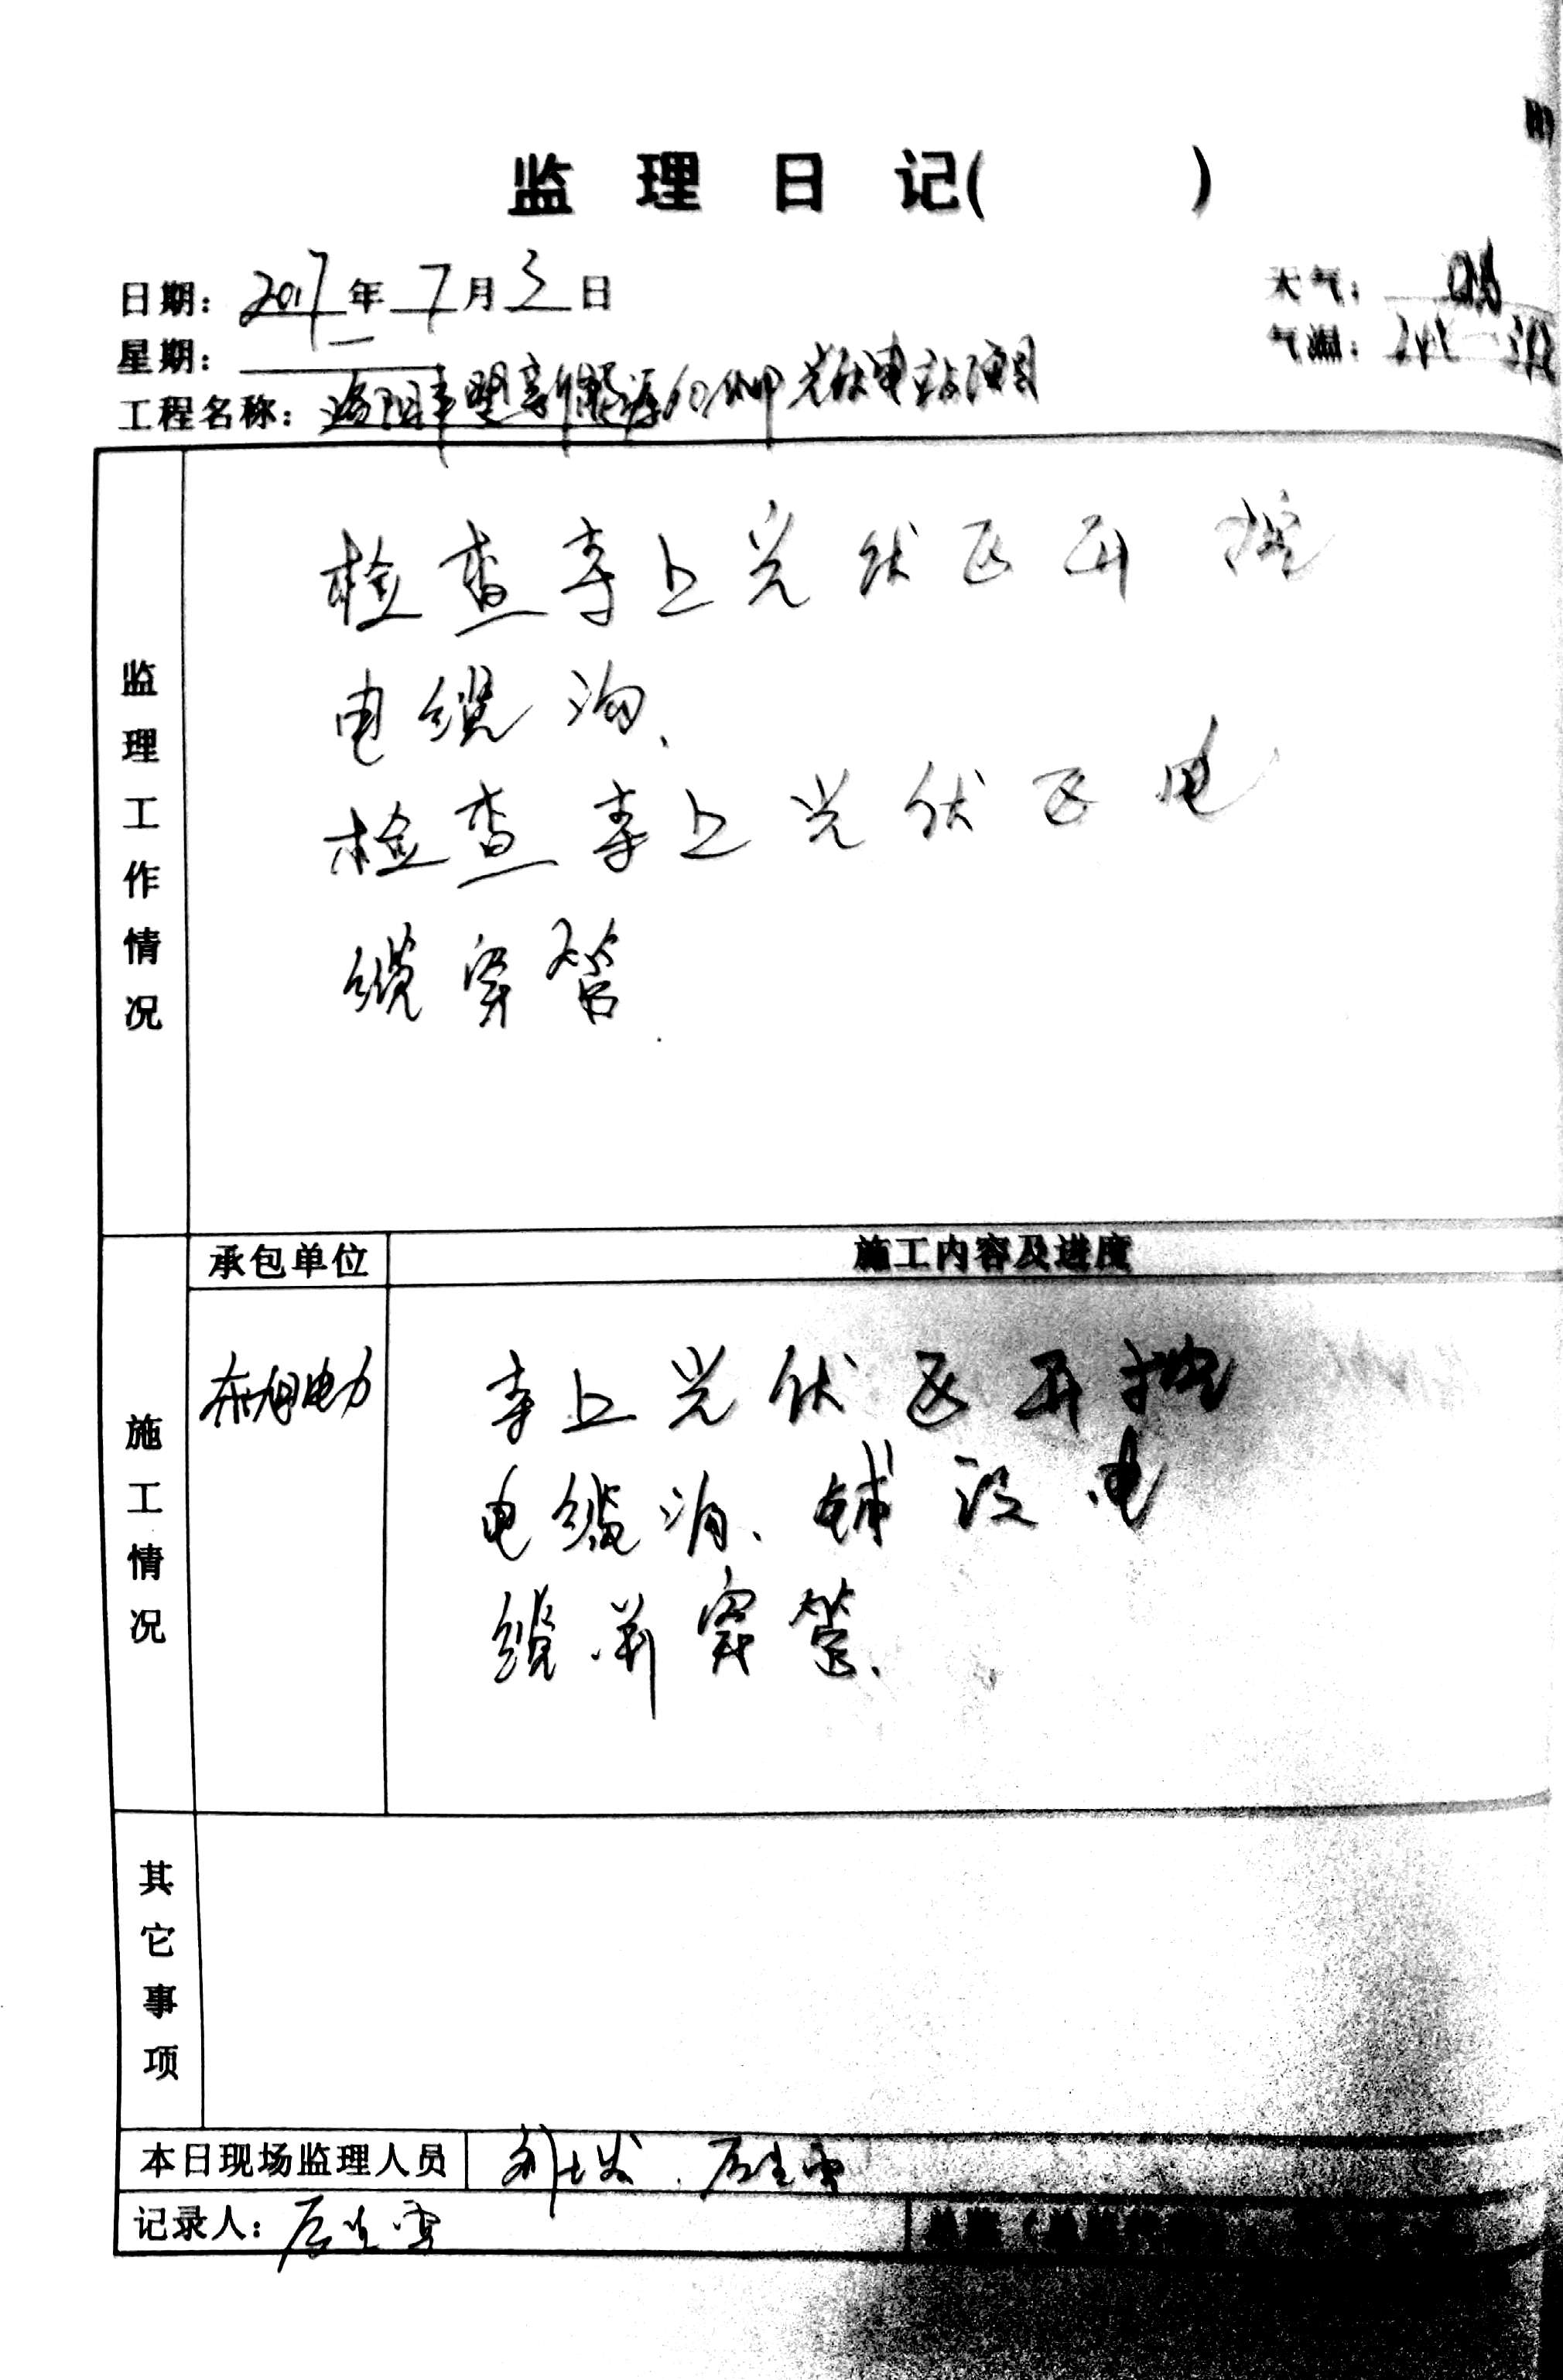 监理日记( )
日期: 2017年7月3日
天气: 晴
星期: 一
气温:
工程名称: 洛阳丰墅新能源60MW光伏电站项目
监理工作情况
检查李上光伏区开挖
电缆沟、
检查李上光伏区电
缆穿管
施工情况
承包单位
施工内容及进度
东旭电力
李上光伏区开挖
电缆沟、铺设电
缆并穿管、
其它事项
本日现场监理人员
记录人: